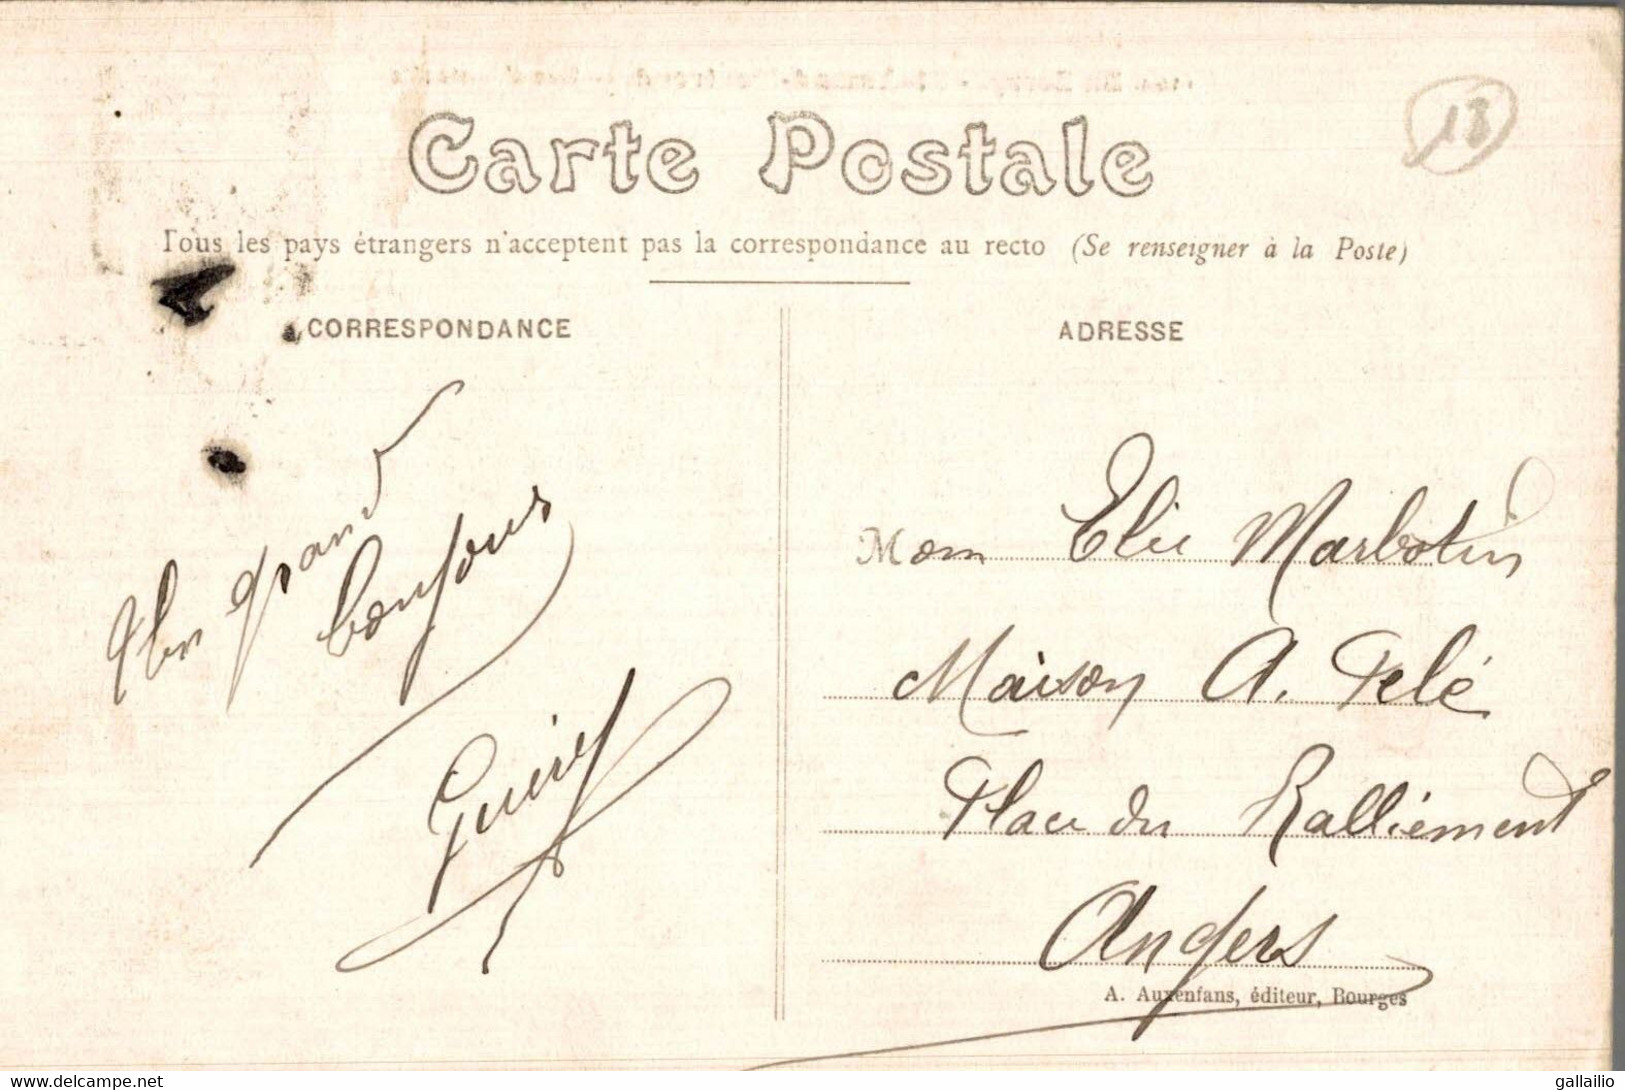 18
Carte Postale
Tous les pays étrangers n'acceptent pas la correspondance au recto (Se renseigner à la Poste)
CORRESPONDANCE
grand
bonjour
ADRESSE
Mom Elie Marbotin
Maison A. Pelé
Place du Ralliement
Angers
A. Auxenfans, éditeur, Bourges
delcampe.net
gallailio